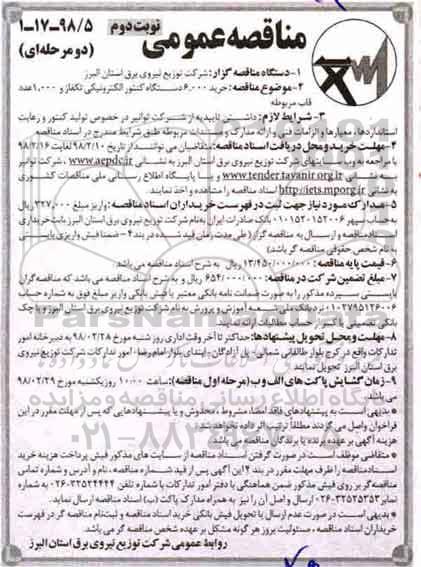 نوبت دوم
مناقصه عمومی
۱-۱۷-۹۸/۵
(دو مرحله‌ای)
۱-دستگاه مناقصه گزار: شرکت توزیع نیروی برق استان البرز
۲-موضوع مناقصه: خرید ۶۰۰۰ دستگاه کنتور الکترونیکی تکفاز و ۱۰۰۰ عدد
قاب مربوطه
۳- شرایط لازم: داشتن تاییدیه از شرکت توانیر در خصوص تولید کنتور و رعایت
استانداردها، معیارها و الزامات فنی و ارائه مدارک و مستندات مربوطه طبق شرایط مندرج در اسناد مناقصه
۴-مهلت خرید و محل دریافت اسناد مناقصه: متقاضیان می توانند از تاریخ ۹۸/۲/۱۰ لغایت ۹۸/۲/۱۶
با مراجعه به وب سایتهای شرکت توزیع نیروی برق استان البرز به نشانی www.aepdc.ir ، شرکت توانیر
به نشانی www.tender.tavanir.org.ir و یا پایگاه اطلاع رسانی ملی مناقصات کشوری
به نشانی http://iets.mporg.ir اسناد مناقصه را مشاهده و اخذ نمایند.
۵-مدارک مورد نیاز جهت ثبت در فهرست خریداران اسناد مناقصه: واریز مبلغ ۳۲۷/۰۰۰ ریال
به حساب سپهر ۰۱۰۱۵۲۰۱۵۲۰۰۶ بانک صادرات ایران به نام شرکت توزیع نیروی برق استان البرز بابت خریداری
اسناد مناقصه و ارسال به مناقصه گزار (طی مدت زمان قید شده در بند ۴- ضمنا فیش واریزی بایستی
به نام شخص حقوقی مناقصه گر باشد)
۶- قیمت پایه مناقصه: ۱۳/۴۵۰/۰۰۰/۰۰۰ ریال به شرح اسناد مناقصه می باشد
۷-مبلغ تضمین شرکت در مناقصه: ۶۵۴/۰۰۰/۰۰۰ ریال و به شرح اسناد مناقصه می باشد که مناقصه گران
بایستی سپرده مذکور را به صورت ضمانت نامه بانکی معتبر یا فیش بانکی واریز مبلغ فوق به شماره حساب
۰۱۰۲۷۹۵۱۲۶۰۰۶ نزد بانک ملی شعبه آموزش و پرورش به نام شرکت توزیع نیروی برق استان البرز و یا چک
بانکی تضمینی یا کسر از حساب مطالبات ارائه نمایند.
۸-مهلت و محل تحویل پیشنهادها: حداکثر تا آخر وقت اداری روز شنبه مورخ ۹۸/۰۲/۲۸ به دبیرخانه امور
تدارکات واقع در کرج بلوار طالقانی شمالی- پل آزادگان- ابتدای بلوار امام رضا- امور تدارکات شرکت توزیع نیروی
برق استان البرز تحویل نمایند
۹-زمان گشایش پاکت های الف و ب (مرحله اول مناقصه): ساعت ۱۰:۰۰ روز یکشنبه مورخ ۹۸/۰۲/۲۹
می باشد.
* بدیهی است به پیشنهادهای فاقد امضا، مشروط، مخدوش و یا پیشنهادهایی که پس از مهلت مقرر در این
فراخوان واصل می گردند مطلقا ترتیب اثر داده نخواهد شد.
هزینه آگهی بر عهده برنده یا برندگان مناقصه می باشد.
* متقاضی موظف است در صورت گرفتن اسناد مناقصه از سایت های مذکور فیش پرداخت هزینه خرید
اسناد مناقصه را ظرف مهلت مقرر در بند ۴ این آگهی پس از قید شماره مناقصه، نام و آدرس و شماره تماس
مناقصه گر بر روی فیش مذکور ضمن هماهنگی با دفتر امور تدارکات با شماره تلفن ۳۲۵۲۴۴۴۴-۰۲۶ به شماره
نمابر ۳۲۵۲۵۳۵۳-۰۲۶ ارسال و اصل آن را نیز به همراه مدارک پاکت (ب) اسناد مناقصه ارسال نماید.
* بدیهی است در صورت عدم ارسال یا تحویل فیش بانکی خرید اسناد مناقصه و ثبت نام مناقصه گر در فهرست
خریداران اسناد مناقصه، مسئولیت بروز هر گونه مشکل بر عهده شخص مناقصه گر می باشد.
روابط عمومی شرکت توزیع نیروی برق استان البرز